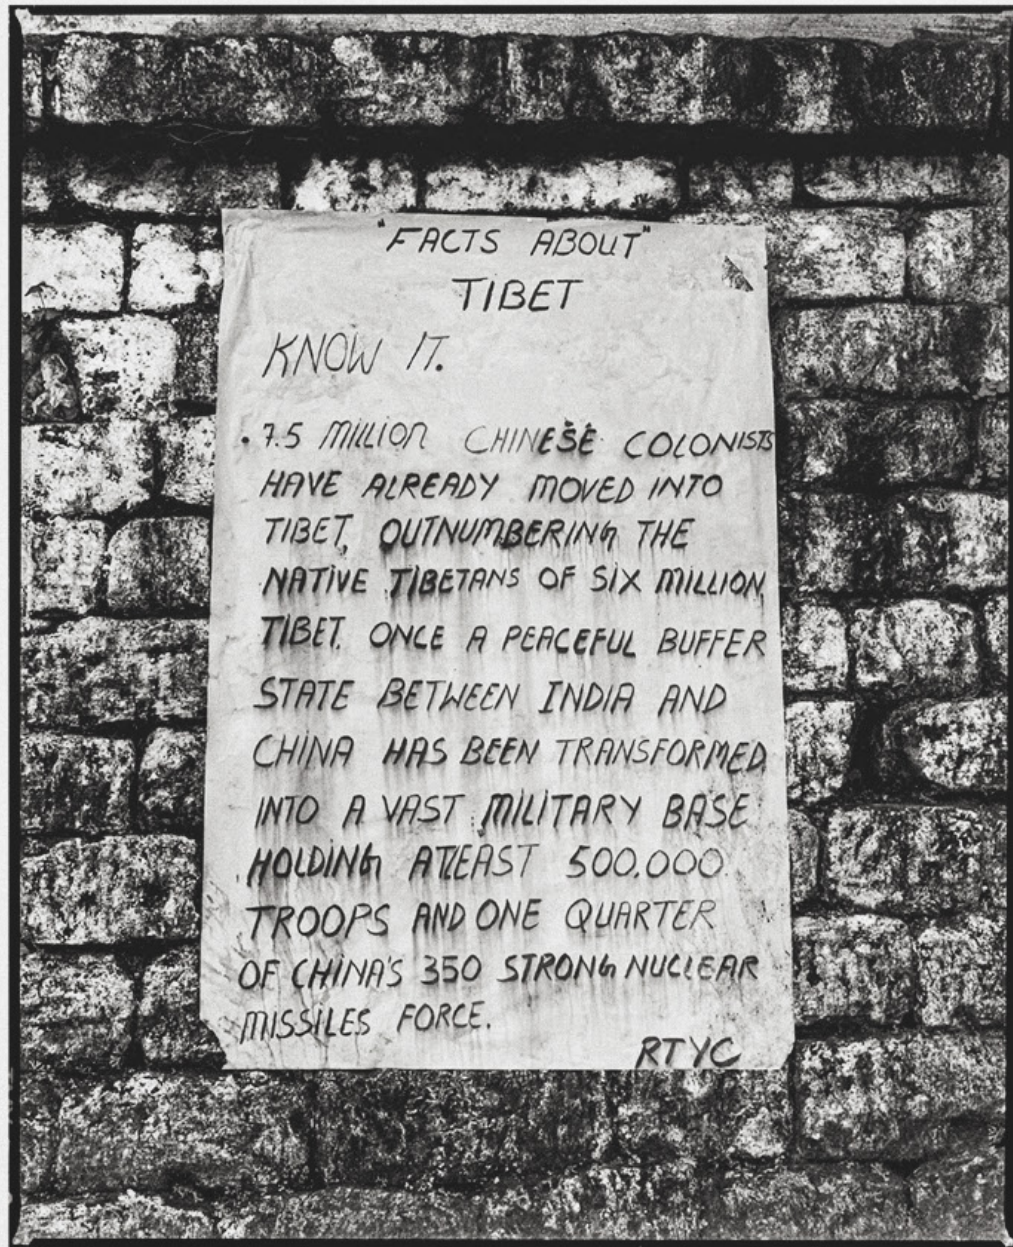 "FACTS ABOUT"
TIBET
KNOW IT.
• 7.5 MILLION CHINESE COLONISTS
HAVE ALREADY MOVED INTO
TIBET, OUTNUMBERING THE
NATIVE TIBETANS OF SIX MILLION,
TIBET. ONCE A PEACEFUL BUFFER
STATE BETWEEN INDIA AND
CHINA HAS BEEN TRANSFORMED
INTO A VAST MILITARY BASE
HOLDING ATLEAST 500.000
TROOPS AND ONE QUARTER
OF CHINA'S 350 STRONG NUCLEAR
MISSILES FORCE.
RTYC